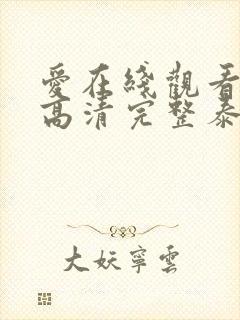 愛在綫觀看
高清完整泰
大妖寧雲